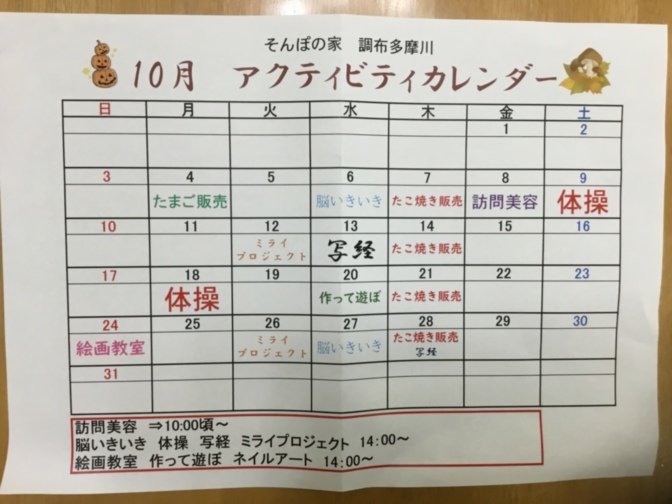 そんぽの家　調布多摩川
10月　アクティビティカレンダー
日 月 火 水 木 金 土
1 2
3 4 5 6 7 8 9
たまご販売 脳いきいき たこ焼き販売 訪問美容 体操
10 11 12 13 14 15 16
ミライ
プロジェクト 写経 たこ焼き販売
17 18 19 20 21 22 23
体操 作って遊ぼ たこ焼き販売
24 25 26 27 28 29 30
絵画教室 ミライ
プロジェクト 脳いきいき たこ焼き販売
写経
31
訪問美容　⇒10:00頃～
脳いきいき　体操　写経　ミライプロジェクト　14:00～
絵画教室　作って遊ぼ　ネイルアート　14:00～